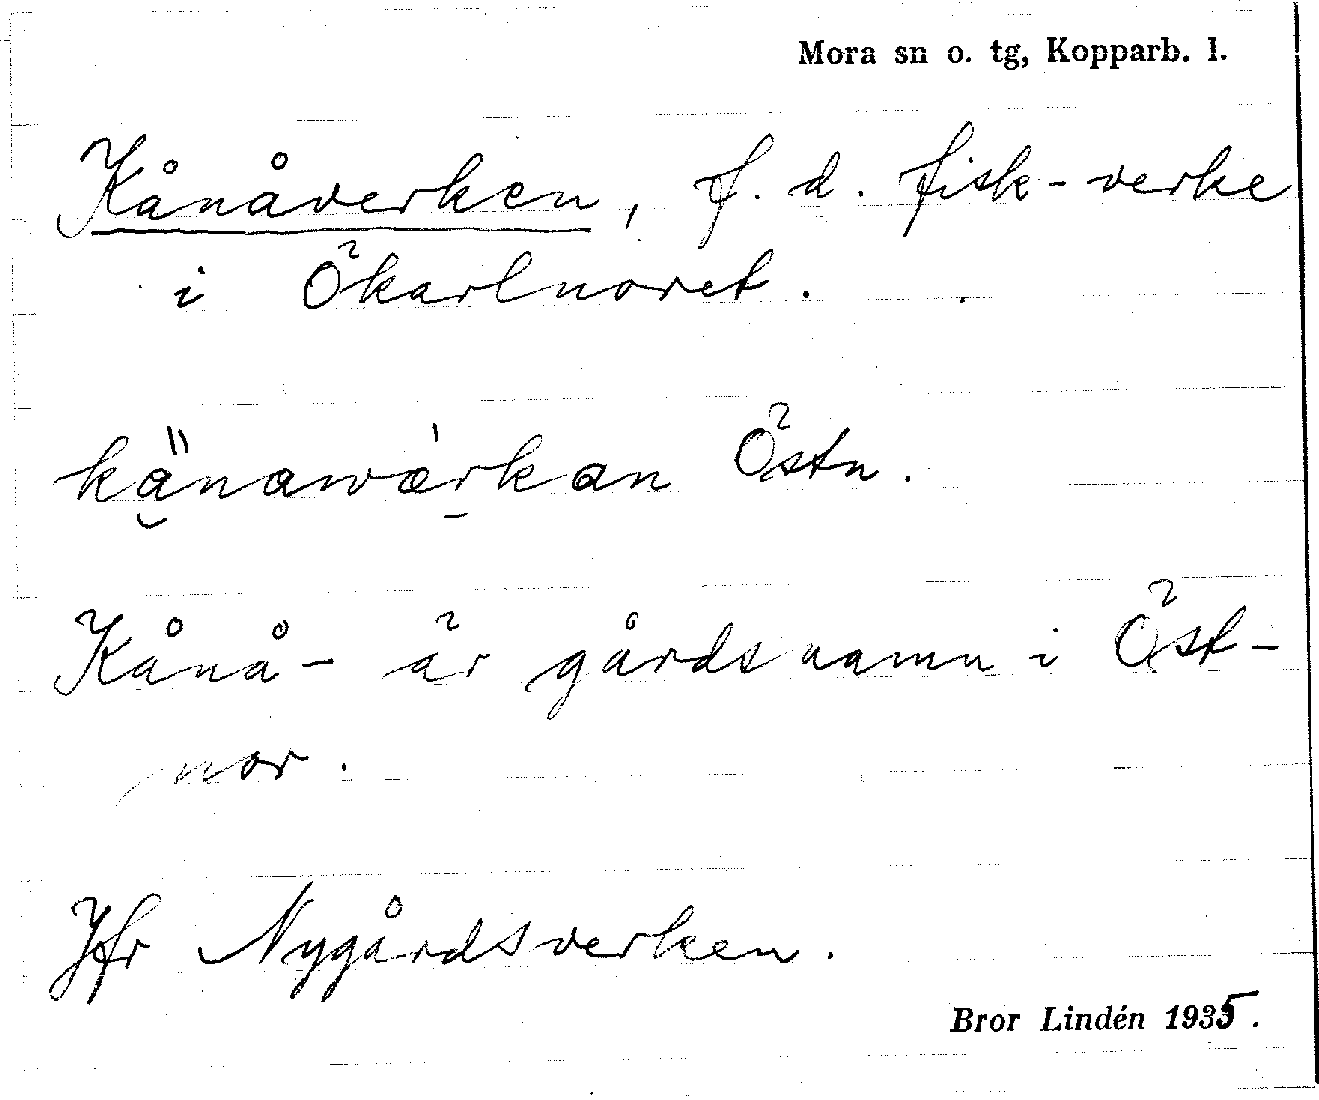 Mora sn o. tg, Kopparb. l.
Kånåverken, f. d. fisk-verke
i Ökarlnoret.
kånawärkan Östn.
Kånå- är gårdsnamn i Öst-
nor.
Jfr Nygårdsverken.
Bror Lindén 1935.